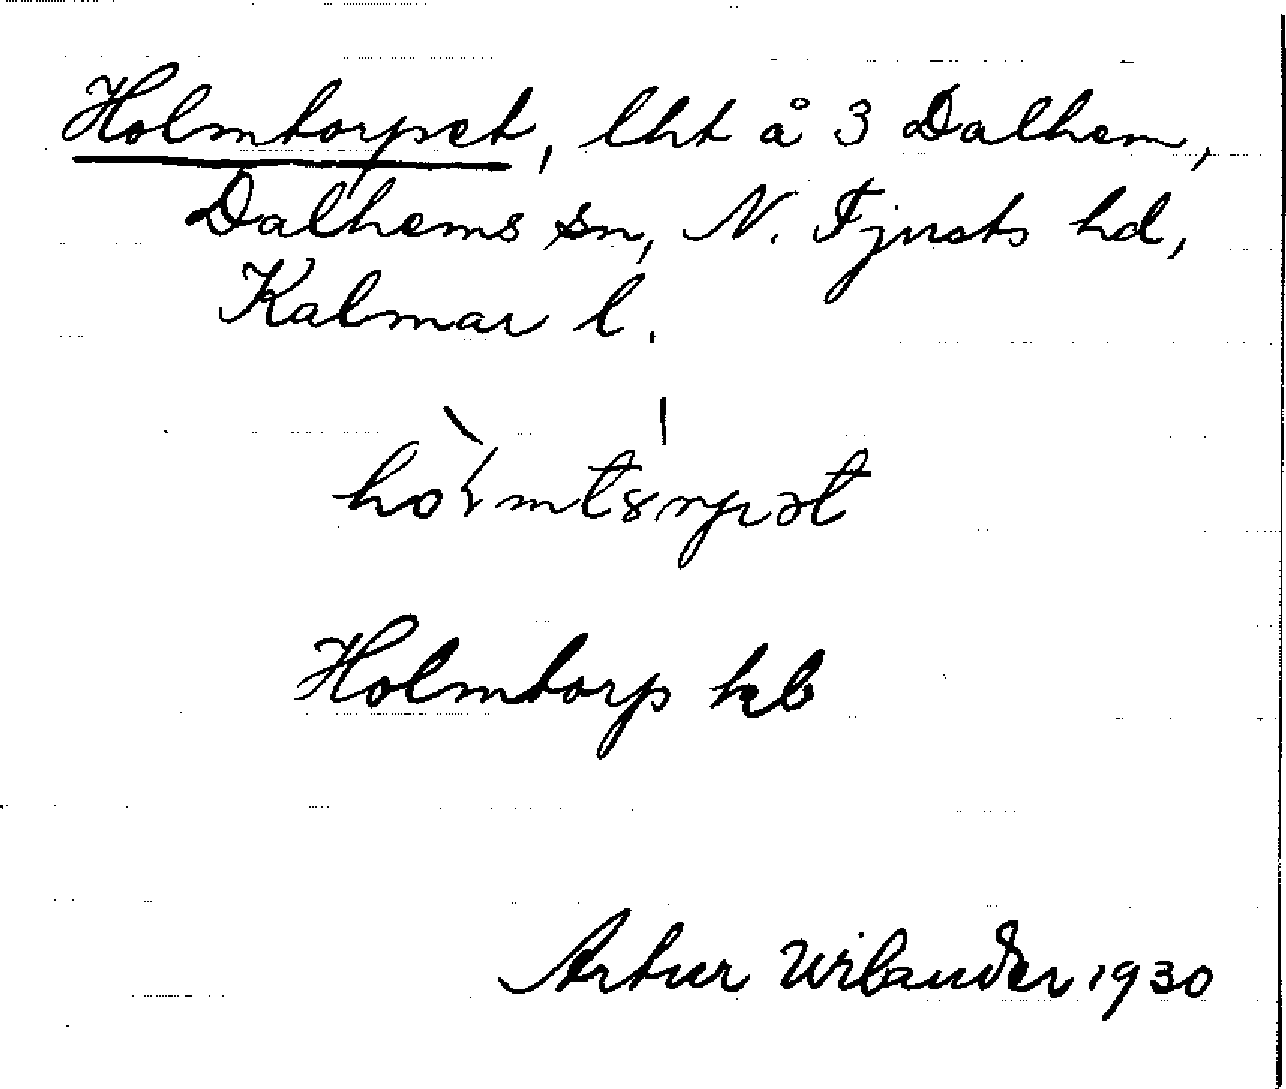 Holmtorpet, lht å 3 Dalhem,
Dalhems sn, N. Tjusts hd,
Kalmar l.
Holmtorp kb
Artur Wilander 1930